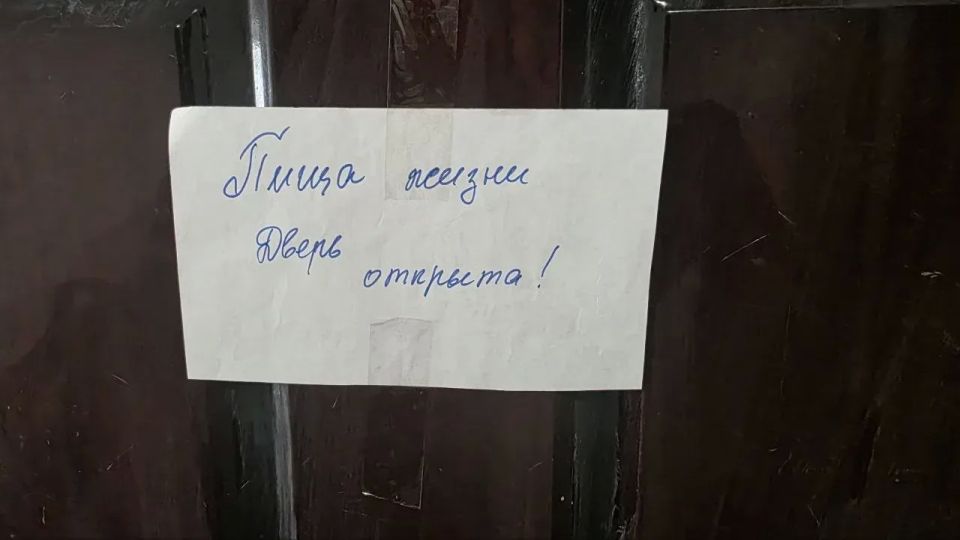 Пища жизни
Дверь
открыта!